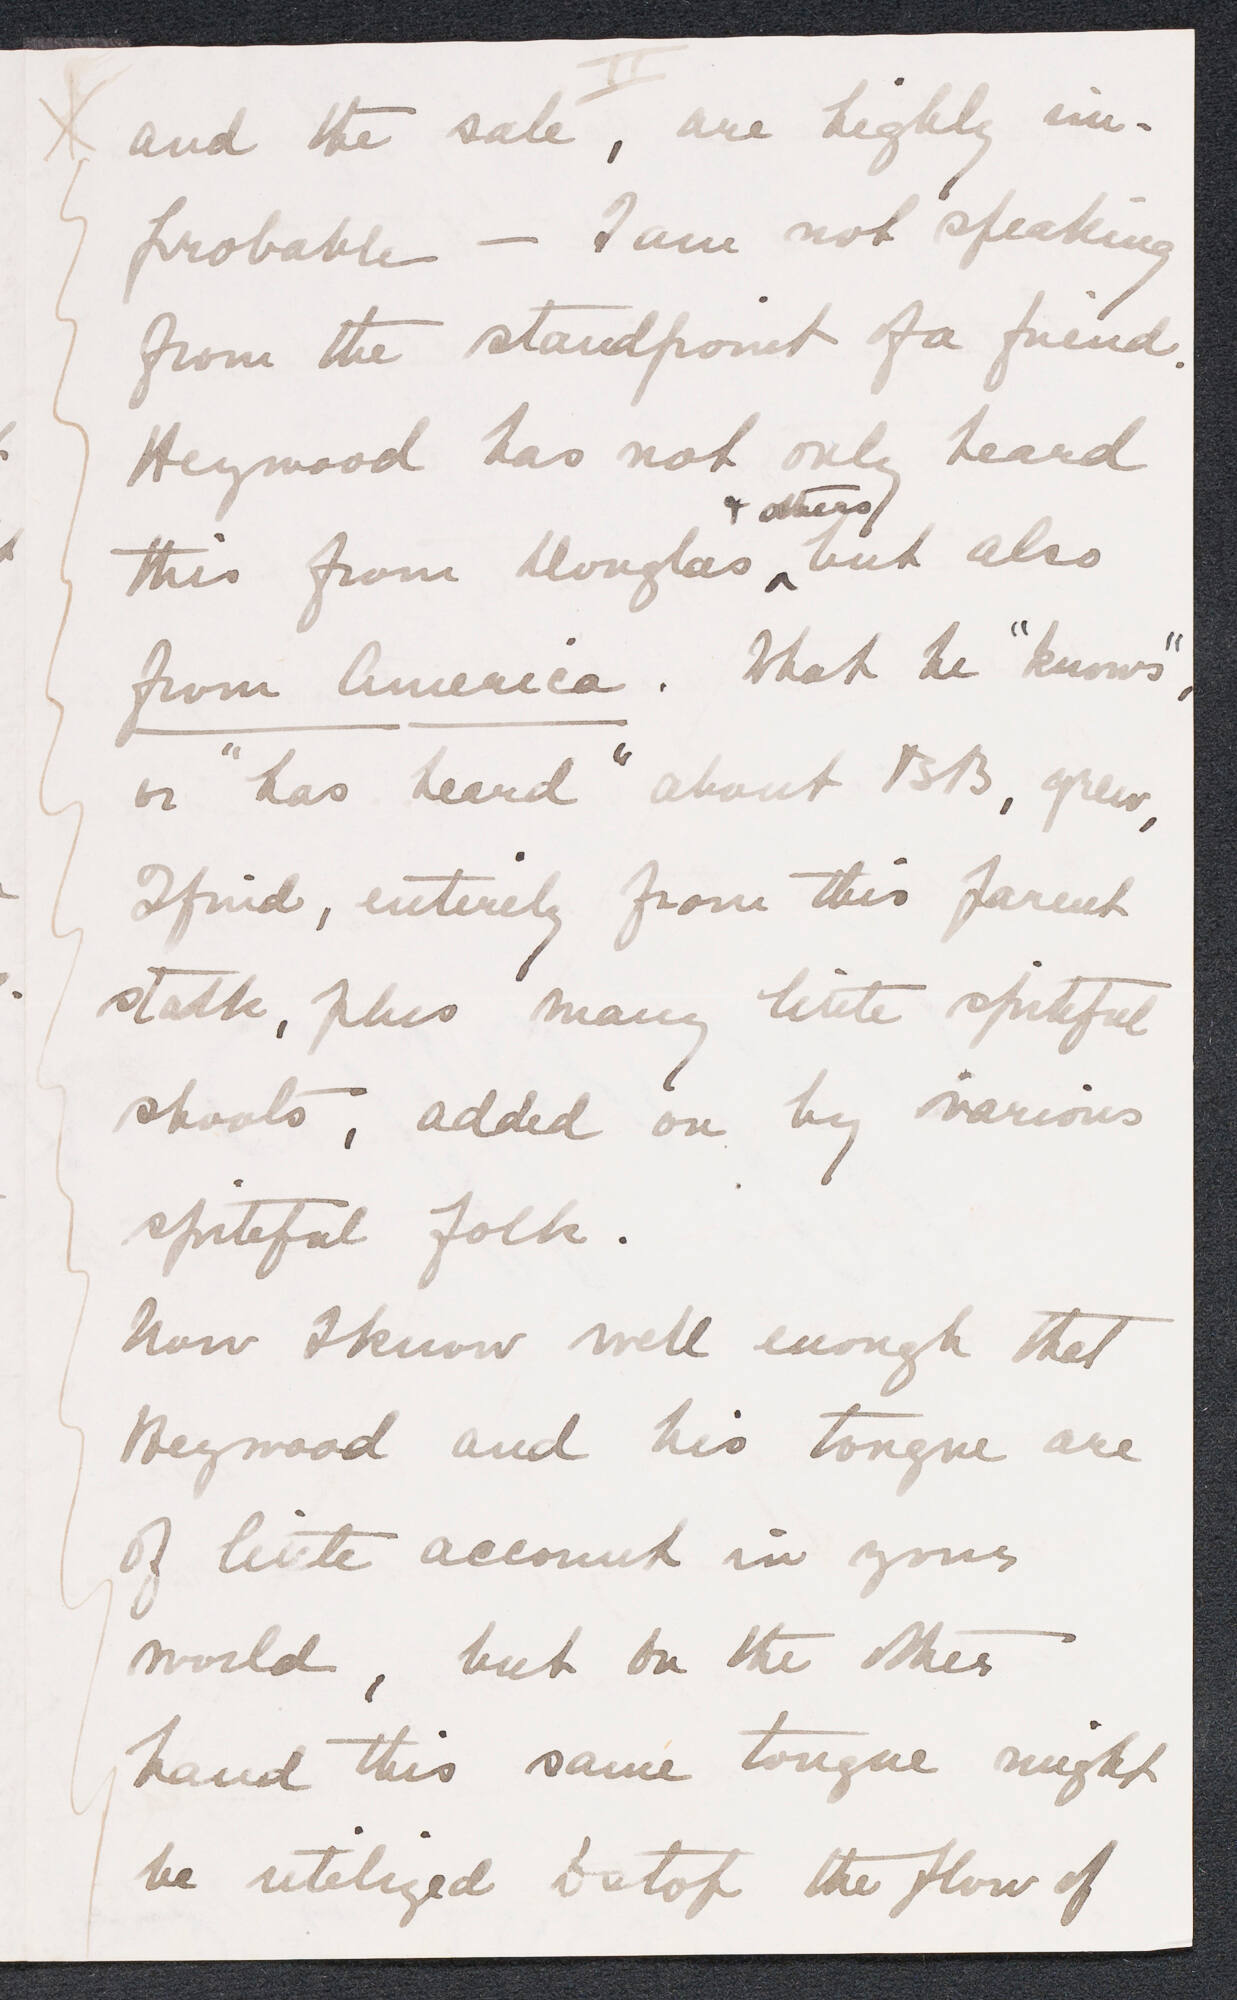 II
and the sale, are highly im-
probable — I am not speaking
from the standpoint of a friend.
Heywood has not only heard
this from Douglas & others but also
from America. What he "knows",
or "has heard" about BB, grew,
I find, entirely from this parent
stalk, plus many little spiteful
shoots, added on by various
spiteful folk.
Now I know well enough that
Heywood and his tongue are
of little account in your
world, but on the other
hand this same tongue might
be utilized to stop the flow of